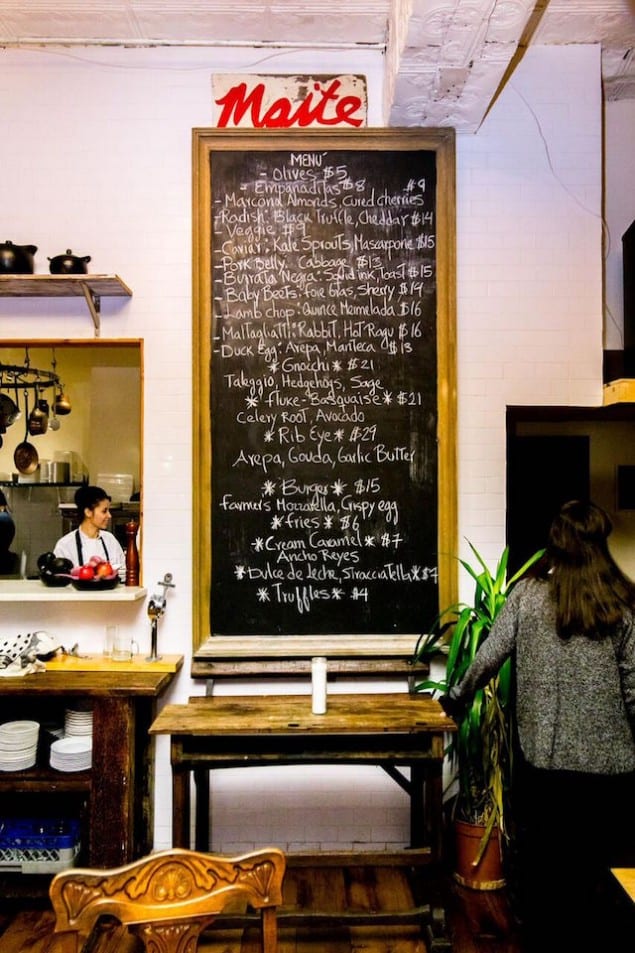 Maite
MENÚ
- OLIVES $5
- Empanaditas $8 $9
- Marcona Almonds, Cured cherries
- Radish: Black Truffle, Cheddar $14
- Veggie $9
- Caviar: Kale Sprouts, Mascarpone $15
- Pork Belly. Cabbage $13
- Burrata Negra: Squid ink, Toast $15
- Baby Beets: Foie Gras, Sherry $14
- Lamb chop: Quince Mermelada $16
- Maltagliatti: Rabbit, Hot Ragu $16
- Duck Egg: Arepa, Manteca $13
* Gnocchi * $21
Taleggio, Hedgehogs, Sage
* Fluke-Basquaise * $21
Celery Root, Avocado
* Rib Eye * $29
Arepa, Gouda, Garlic Butter
* Burger * $15
farmer's Mozzarella, Crispy egg
* fries * $6
* Cream Caramel * $7
Ancho Reyes
* Dulce de Leche, Stracciatella * $7
* Truffles * $4